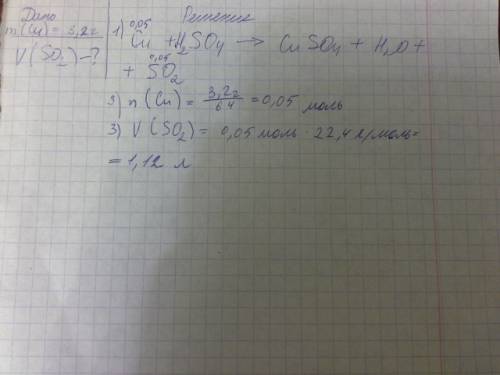 Дано
m(Cu) = 3,2г
V(SO₂) - ?
Решение
1) 0,05 Cu + H₂SO₄ → CuSO₄ + H₂O +
+ 0,05 SO₂
2) n(Cu) = 3,2г/64 = 0,05 моль
3) V(SO₂) = 0,05 моль · 22,4 л/моль =
= 1,12 л